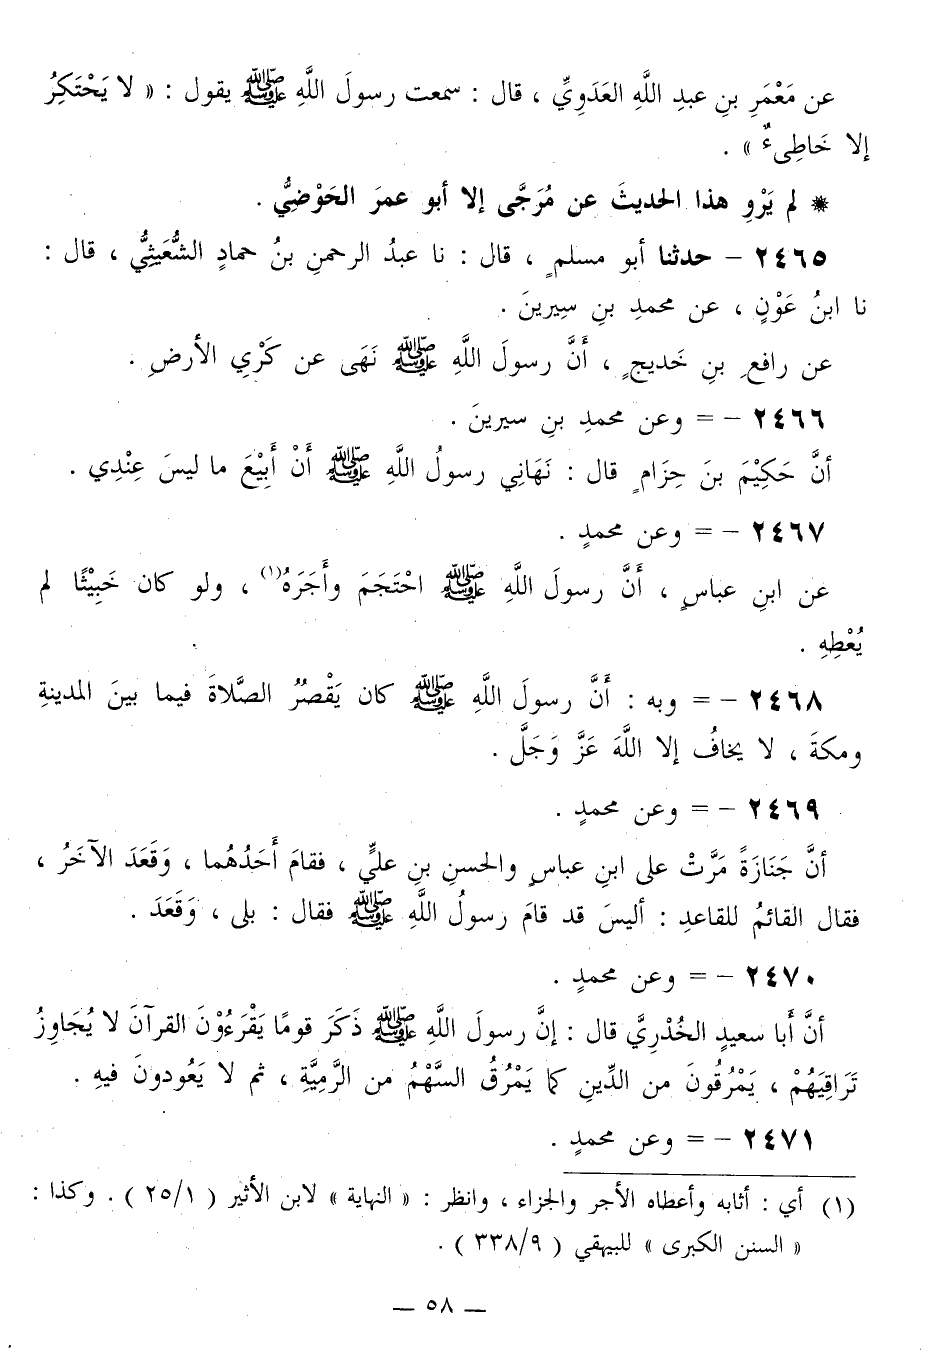 عن مَعْمَرِ بنِ عبدِ اللَّهِ العَدَوِيِّ ، قال : سمعت رسولَ اللَّهِ ﷺ يقول : « لا يَحْتَكِرُ
إلا خَاطِىءٌ » .
* لم يَرْوِ هذا الحديثَ عن مُرَجَّى إلا أبو عمرَ الحَوْضِيُّ .
٢٤٦٥ – حدثنا أبو مسلمٍ ، قال : نا عبدُ الرحمنِ بنُ حمادٍ الشُّعَيثِيُّ ، قال :
نا ابنُ عَوْنٍ ، عن محمدِ بنِ سِيرينَ .
عن رافعِ بنِ خَديجٍ ، أَنَّ رسولَ اللَّهِ ﷺ نَهَى عن كَرْيِ الأرضِ .
٢٤٦٦ – = وعن محمدِ بنِ سيرينَ .
أنَّ حَكِيْمَ بنَ حِزَامٍ قال : نَهَانِي رسولُ اللَّهِ ﷺ أَنْ أَبِيْعَ ما ليسَ عِنْدِي .
٢٤٦٧ – = وعن محمدٍ .
عن ابنِ عباسٍ ، أَنَّ رسولَ اللَّهِ ﷺ احْتَجَمَ وأَجَرَهُ(١) ، ولو كان خَبِيْثًا لم
يُعْطِهِ .
٢٤٦٨ – = وبه : أَنَّ رسولَ اللَّهِ ﷺ كان يَقْصُرُ الصَّلاةَ فيما بينَ المدينةِ
ومكةَ ، لا يخافُ إلا اللَّهَ عَزَّ وَجَلَّ .
٢٤٦٩ – = وعن محمدٍ .
أنَّ جَنَازَةً مَرَّتْ على ابنِ عباسٍ والحسنِ بنِ عليٍّ ، فقامَ أَحَدُهُما ، وَقَعَدَ الآخَرُ ،
فقال القائمُ للقاعدِ : أليسَ قد قامَ رسولُ اللَّهِ ﷺ فقال : بلى ، وَقَعَدَ .
٢٤٧٠ – = وعن محمدٍ .
أنَّ أَبا سعيدٍ الخُدْرِيَّ قال : إنَّ رسولَ اللَّهِ ﷺ ذَكَرَ قومًا يَقْرَءُوْنَ القرآنَ لا يُجَاوِزُ
تَرَاقِيَهُمْ ، يَمْرُقُونَ من الدِّينِ كما يَمْرُقُ السَّهْمُ من الرَّمِيَّةِ ، ثم لا يَعُودونَ فيهِ .
٢٤٧١ – = وعن محمدٍ .
(١) أي : أثابه وأعطاه الأجر والجزاء ، وانظر : « النهاية » لابن الأثير ( ٢٥/١ ) . وكذا :
« السنن الكبرى » للبيهقي ( ٣٣٨/٩ ) .
— ٥٨ —